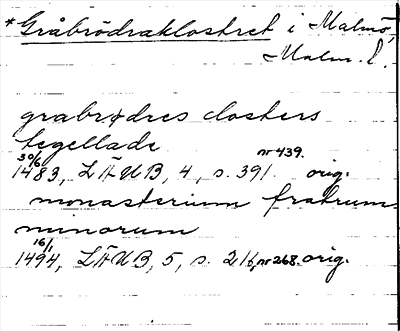 *Gråbrödraklostret i Malmö,
Malm. l.
grabrødres closters
tegellade
30/6 1483, LÄUB, 4, s. 391 nr 439. orig.
monasterium fratrum
minorum
16/1 1494, LÄUB, 5, s. 216, nr 268. orig.